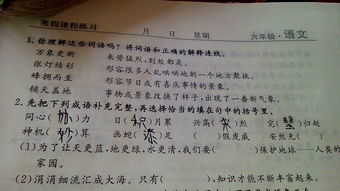 寒假课程练习
月 日 星期 六年级·语文
1. 你理解这些词语吗？将词语和正确的解释连线。
万象更新 来势猛烈，到处都是。
张灯结彩 形容很多人乱哄哄地朝一个地方聚拢。
蜂拥而至 形容节日或有喜庆事情的景象。
铺天盖地 事物或景象改换了样子，出现了一番新气象。
2. 先把下列成语补充完整，再选择恰当的填在句中的括号里。
同心(协)力 日(积)月累 兴高( )烈 完(璧)归赵
神机(妙)算 画蛇(添)足 ( )假虎威 安然无( )
(1)为了让天更蓝，地更绿，水更清，我们要( )保护地球——人类的
家园。
(2)涓涓细流汇成大海。只有( )，知识才能不断丰富起来。